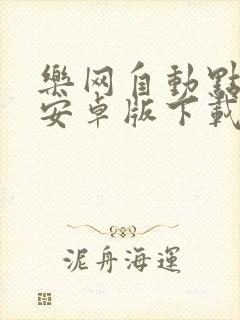 樂网自動點
安卓版下載
泥舟海運